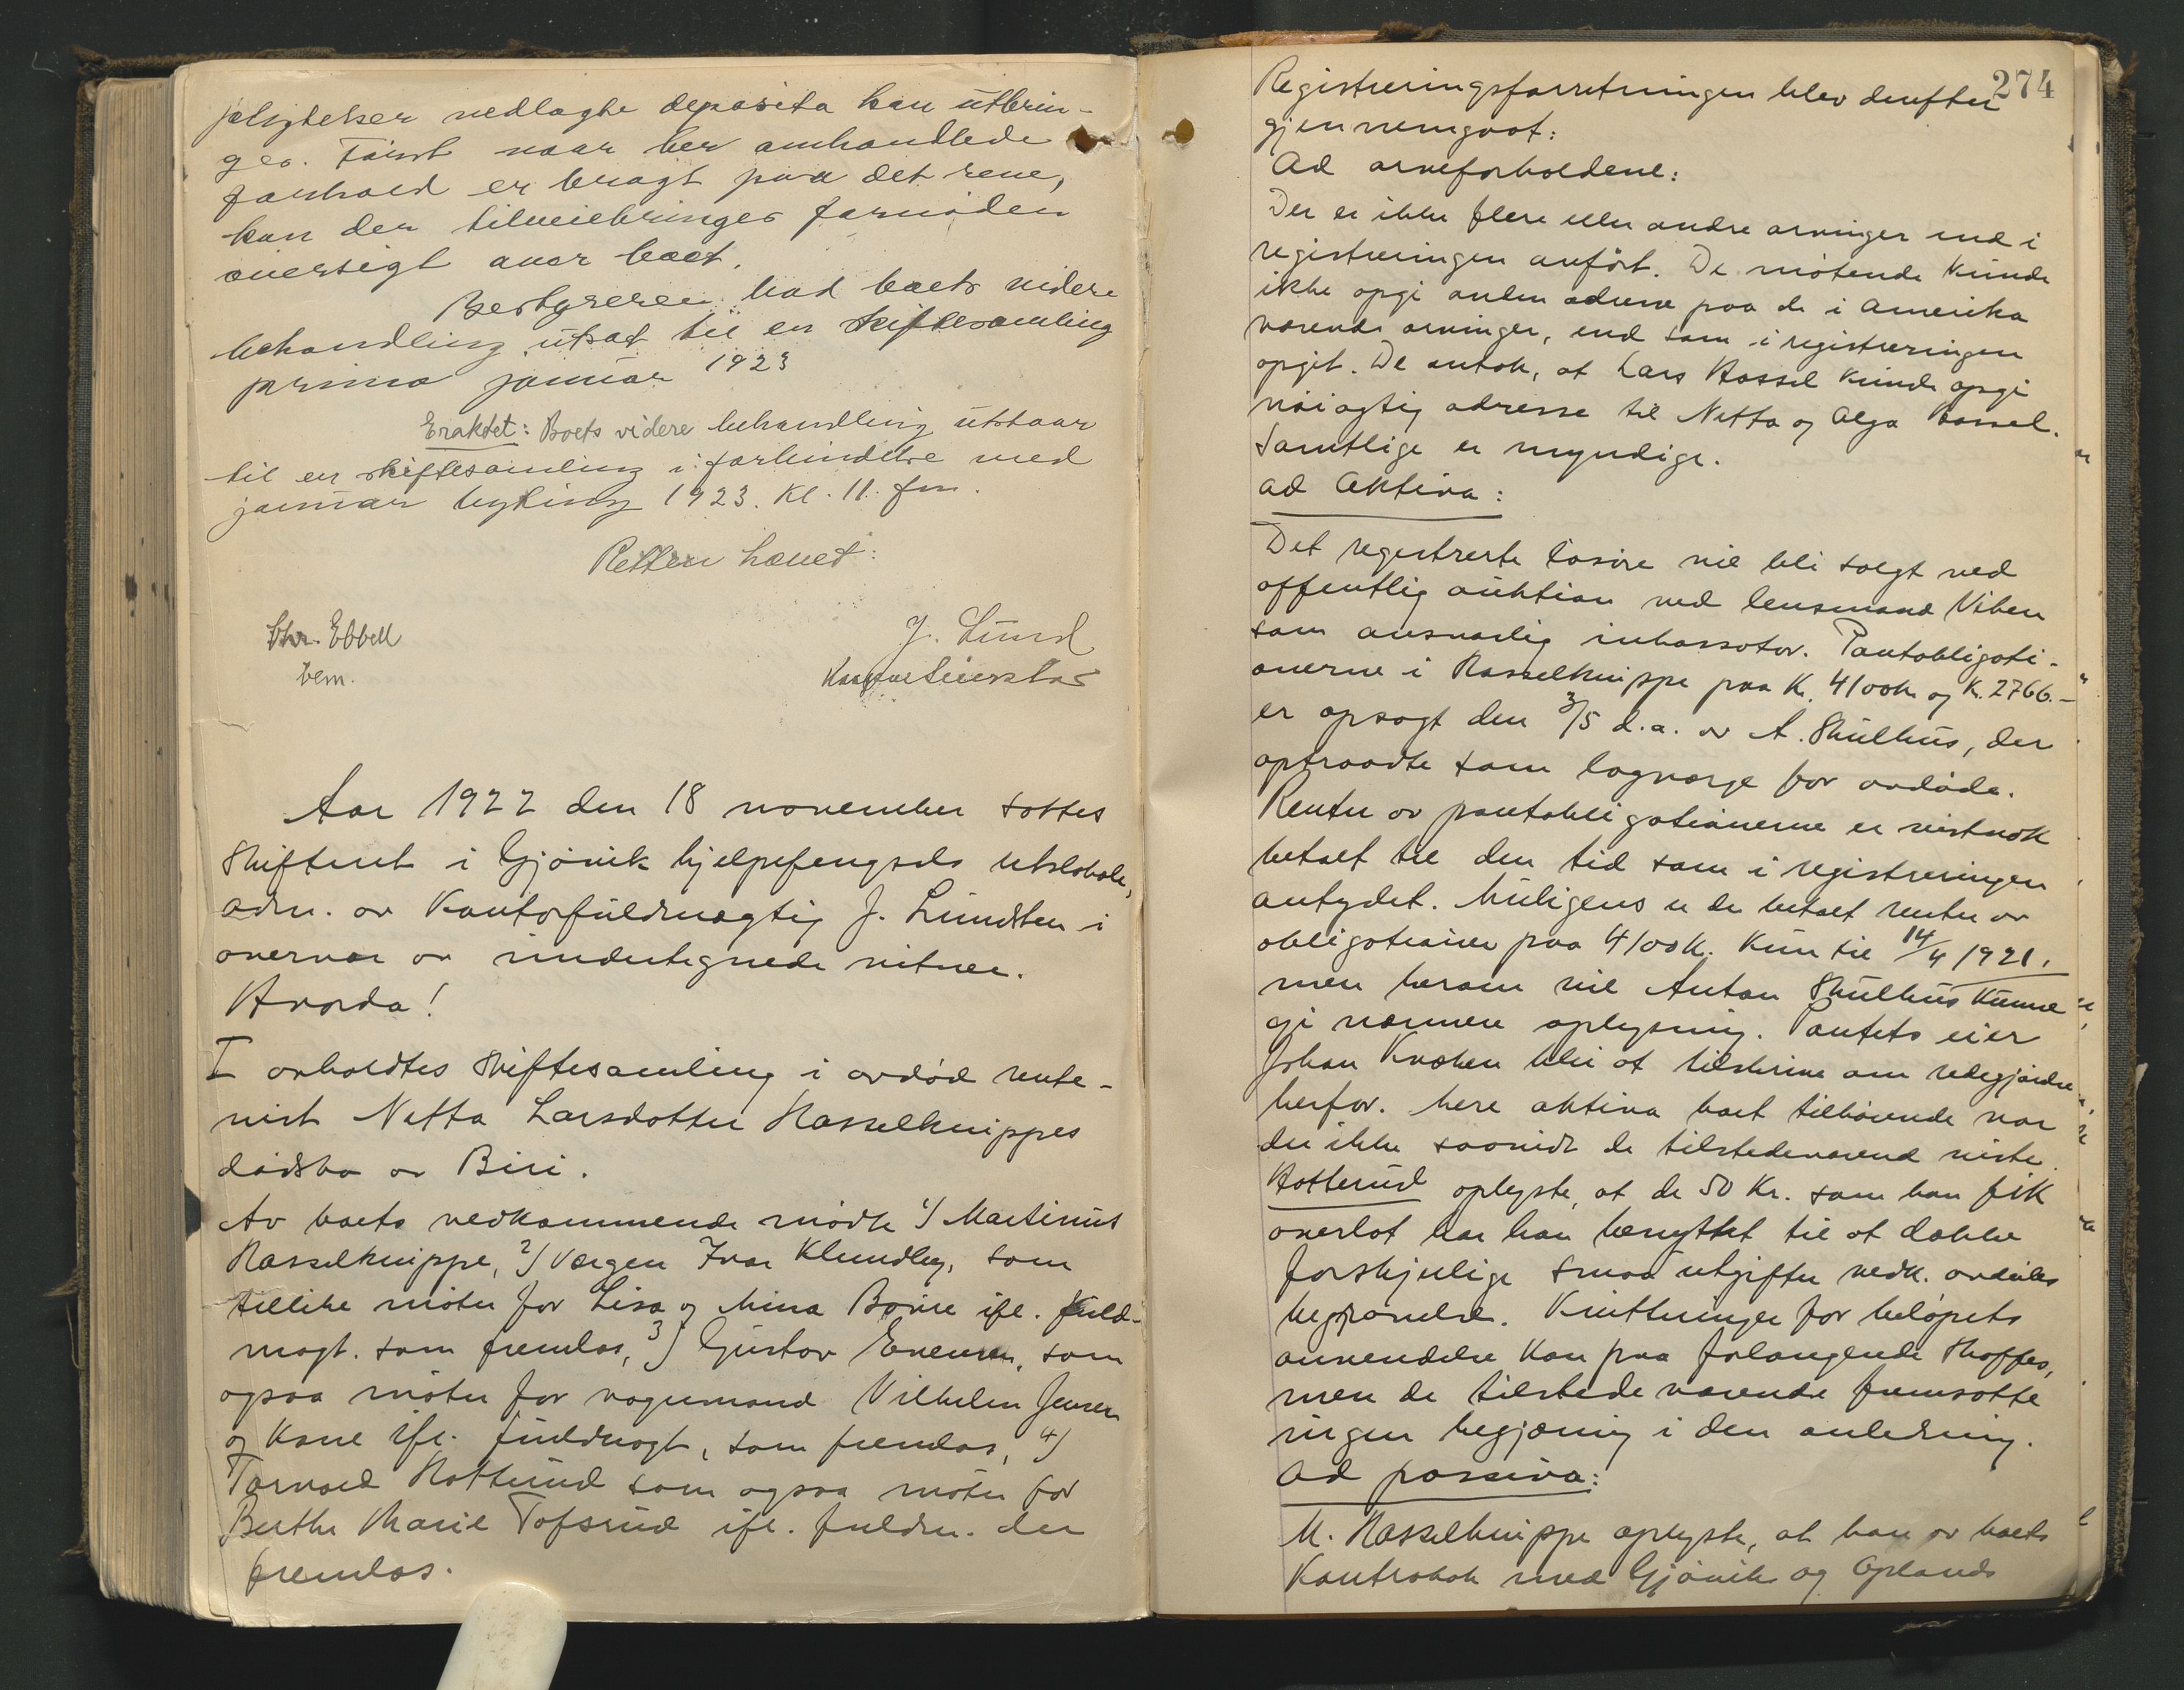 pligtelser nedlagte deposita kan utbrin-
ges. Først naar her omhandlede
forhold er bragt paa det rene,
kan der tilveiebringes fornøden
oversigt over boet.
Bestyreren: lod boets videre
behandling utsat til en skiftesamling
primo januar 1923
Eraktet: Boets videre behandling utstaar
til en skiftesamling i forbindelse med
januar tegting 1923. Kl. 11. fm.
Retten hævet:
Chr. Ebbell
J. Lund
Aar 1922 den 18 november sattes
Skifteret i Gjøvik hjelpefengsels retslokale,
adm. av Kontorfuldmægtig J. Lundsten i
overvær av undertegnede vitner.
Hvorda!
I avholdtes skiftesamling i avdød rente-
nist Netta Larsdotter Hasselknippes
dødsbo av Biri.
Av boets vedkommende mødte 1/ Martinus
Hasselknippe, 2/ Værgen Ivar Klundby, som
tillike møter for Lisa og Mina Bovre ifl. fuld-
magt. som fremlas, 3/ Gustav Evensen, som
ogsaa møter for vognmand Vilhelm Jensen
og Kone ifl. fuldmagt, som fremlas, 4/
Torvald Hotterud som ogsaa møter for
Berthe Marie Tofsrud ifl. fuldm. der
fremlas.
274
Registreringsforretningen blev derefter
gjennemgaat:
Ad arveforholdene:
Der er ikke flere eller andre arvinger end i
registreringen anført. De møtende kunde
ikke opgi anden adresse paa de i Amerika
værende arvinger, end som i registreringen
opgit. De antok, at Lars Hassel kunde opgi
nøiagtig adresse til Netta og Olga Hassel.
Samtlige er myndige.
ad Aktiva:
Det registrerte løsøre vil bli solgt ved
offentlig auktion ved lensmand Viken
som ansvarlig inkassator. Pantobligati-
onerne i Hasselknippe paa Kr. 4100kr og Kr. 2766.-
er opsagt den 3/5 d.a. av A. Skulhus, der
optraadte som lagværge for avdøde.
Renter av pantobligationerne er vistnok
betalt til den tid som i registreringen
antydet. Muligens er der betalt renter av
obligationen paa 4100k. kun til 14/4 1921.
men herom vil Anton Skulhus kunne
gi nærmere oplysning. Pantets eier
Johan Kvæken blir at tilskrive om redegjørelse
herfor. Mere aktiva boet tilhørende var
der ikke saavidt de tilstedeværend visste.
Hotterud oplyste, at de 50 Kr. som han fik
overlat har han benyttet til at dække
forskjellige smaa utgifter vedk. avdødes
begravelse. Kvitteringer for beløpets
anvendelse kan paa forlangende skaffes,
men de tilstedeværende fremsatte
ingen begjæring i den anledning.
Ad passiva:
M. Hasselknippe oplyste, at han av boets
Kontrabok med Gjøvik og Oplands